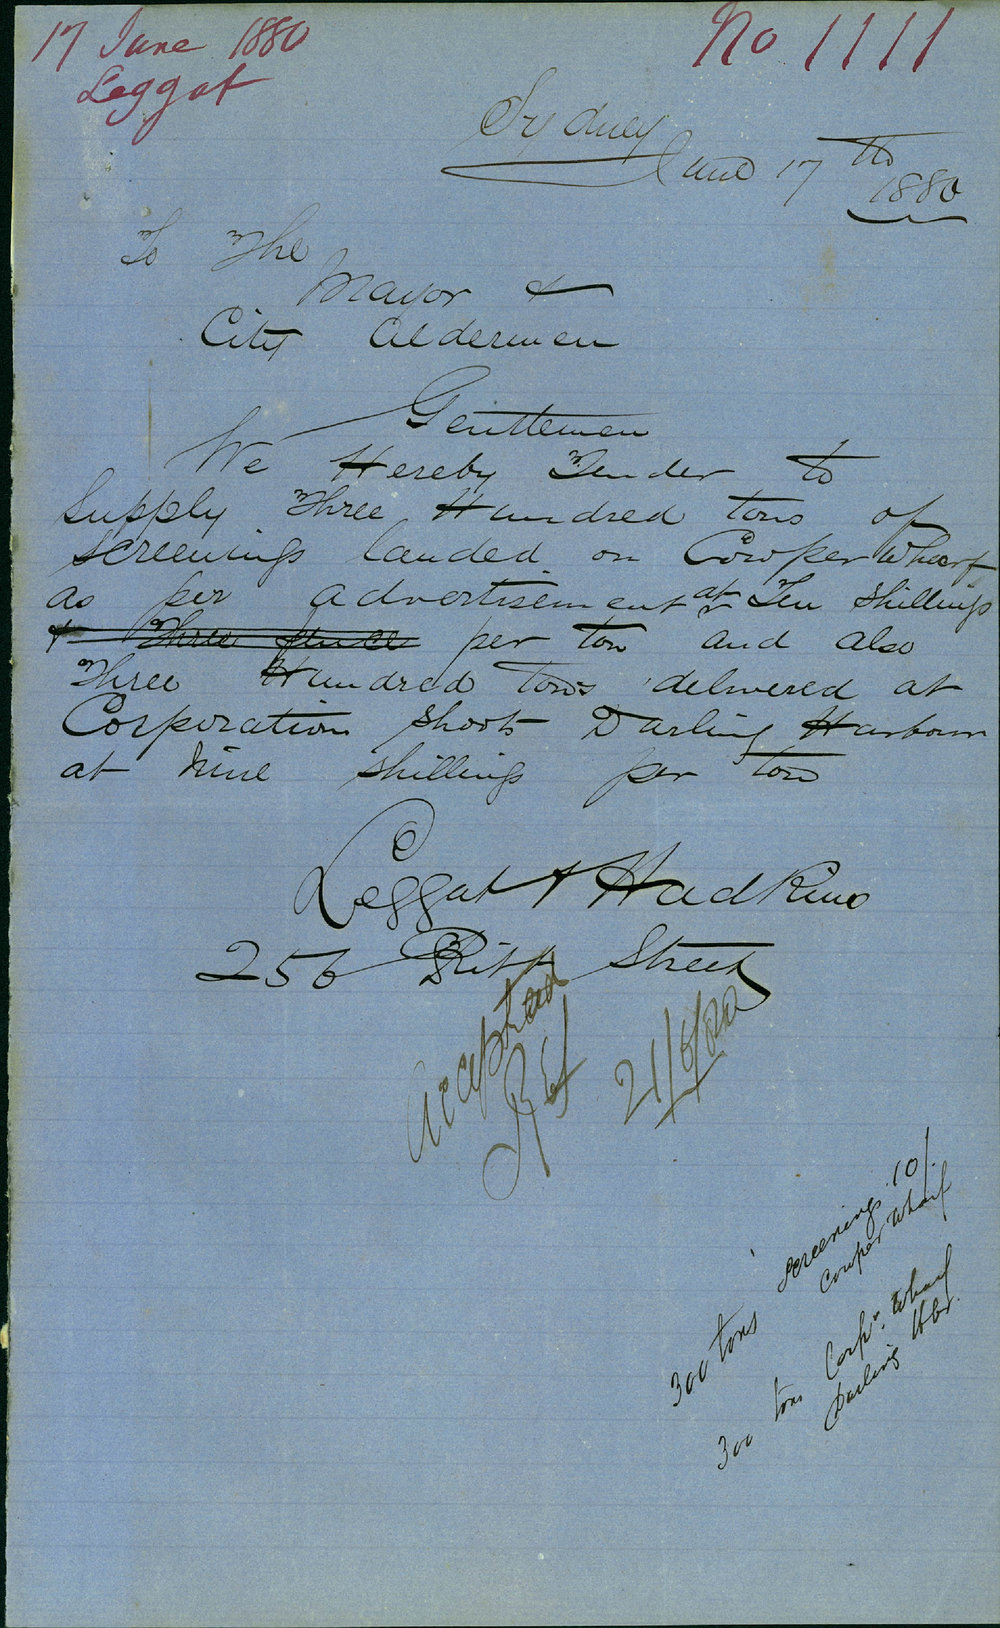 17 June 1880
Leggat
No 1111
Sydney
June 17th
1880
To The
Mayor &
City Aldermen
Gentlemen
We Hereby Tender to
Supply Three Hundred tons of
screenings landed on Cowper Wharf
as per advertisement at Ten shillings
& Three pence per ton and also
Three Hundred tons delivered at
Corporation shoots Darling Harbour
at Nine shillings per ton
Leggat & Hadkins
256 Pitt Street
Accepted
21/6/80
300 tons screenings 10/.
Cowper Wharf
300 tons Corpn. Wharf
Darling Hbr.